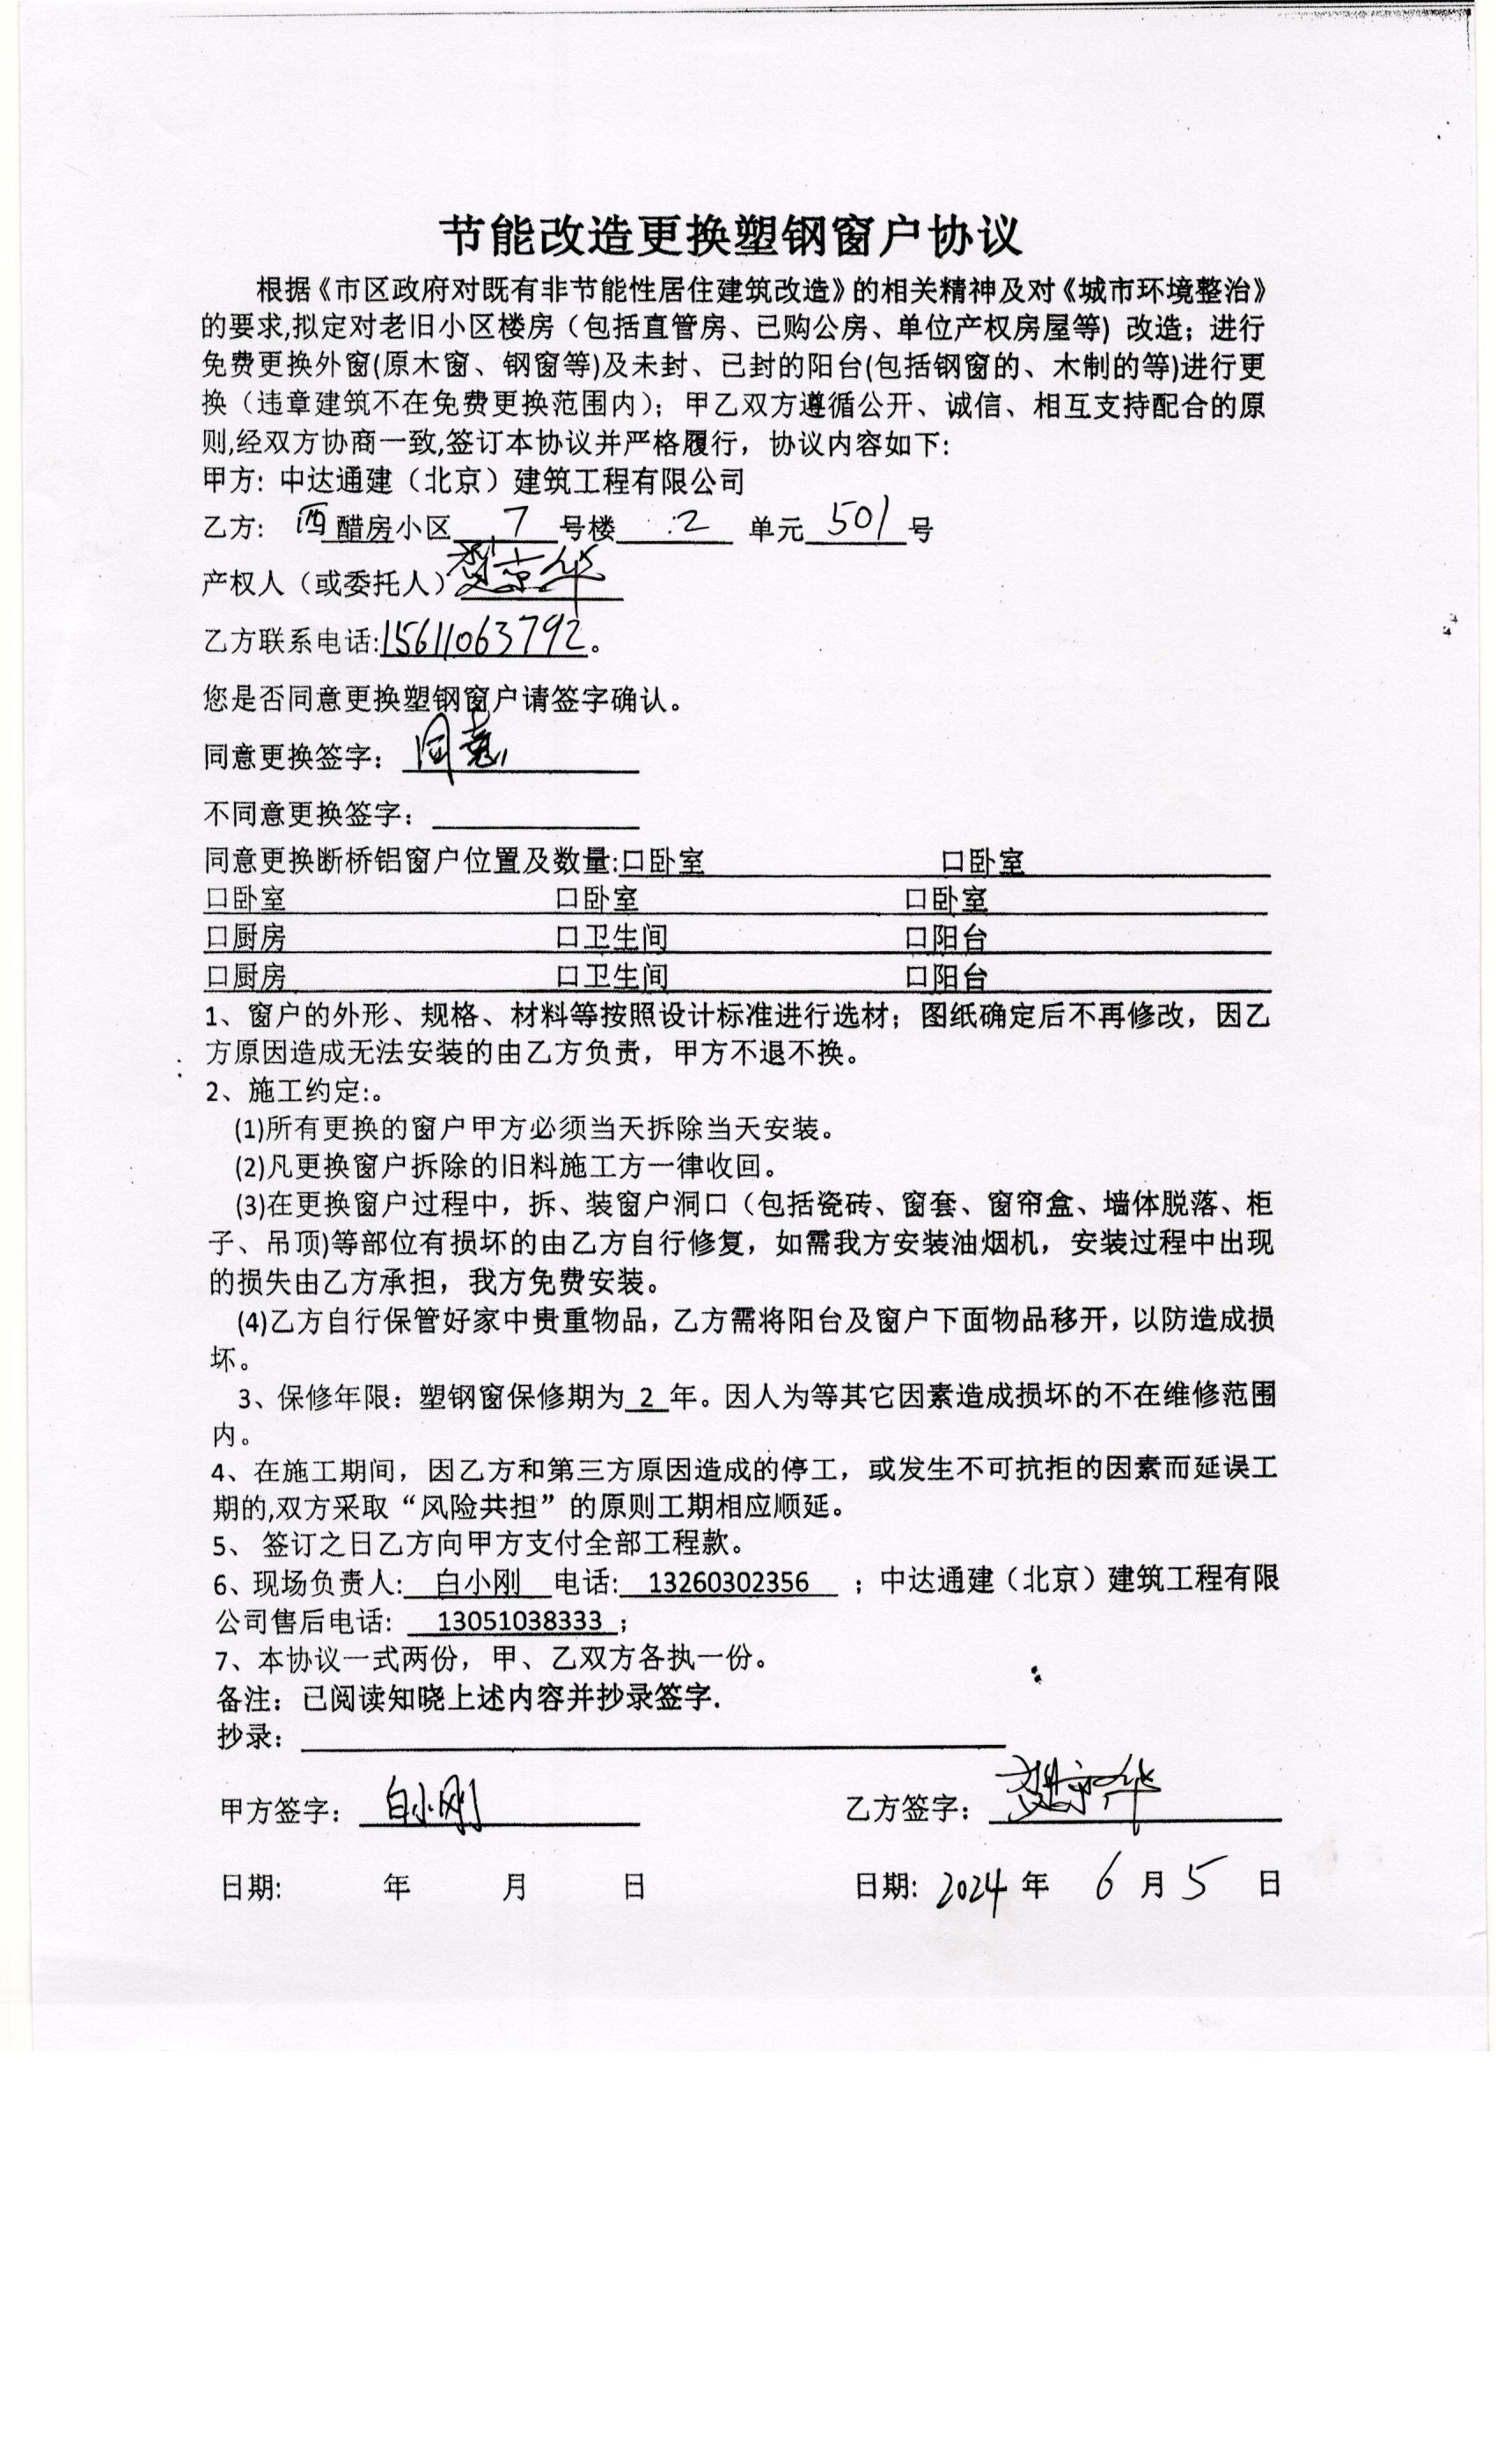 节能改造更换塑钢窗户协议
根据《市区政府对既有非节能性居住建筑改造》的相关精神及对《城市环境整治》
的要求,拟定对老旧小区楼房（包括直管房、已购公房、单位产权房屋等）改造；进行
免费更换外窗(原木窗、钢窗等)及未封、已封的阳台(包括钢窗的、木制的等)进行更
换（违章建筑不在免费更换范围内）；甲乙双方遵循公开、诚信、相互支持配合的原
则,经双方协商一致,签订本协议并严格履行，协议内容如下:
甲方: 中达通建（北京）建筑工程有限公司
乙方: 西醋房小区 7 号楼 2 单元 501 号
产权人（或委托人） 京华
乙方联系电话:15611063792。
您是否同意更换塑钢窗户请签字确认。
同意更换签字：同意
不同意更换签字：
同意更换断桥铝窗户位置及数量:口卧室 口卧室
口卧室 口卧室 口卧室
口厨房 口卫生间 口阳台
口厨房 口卫生间 口阳台
1、窗户的外形、规格、材料等按照设计标准进行选材；图纸确定后不再修改，因乙
方原因造成无法安装的由乙方负责，甲方不退不换。
2、施工约定:。
(1)所有更换的窗户甲方必须当天拆除当天安装。
(2)凡更换窗户拆除的旧料施工方一律收回。
(3)在更换窗户过程中，拆、装窗户洞口（包括瓷砖、窗套、窗帘盒、墙体脱落、柜
子、吊顶)等部位有损坏的由乙方自行修复，如需我方安装油烟机，安装过程中出现
的损失由乙方承担，我方免费安装。
(4)乙方自行保管好家中贵重物品，乙方需将阳台及窗户下面物品移开，以防造成损
坏。
3、保修年限：塑钢窗保修期为 2 年。因人为等其它因素造成损坏的不在维修范围
内。
4、在施工期间，因乙方和第三方原因造成的停工，或发生不可抗拒的因素而延误工
期的,双方采取“风险共担”的原则工期相应顺延。
5、 签订之日乙方向甲方支付全部工程款。
6、现场负责人: 白小刚 电话: 13260302356 ；中达通建（北京）建筑工程有限
公司售后电话: 13051038333 ；
7、本协议一式两份，甲、乙双方各执一份。
备注：已阅读知晓上述内容并抄录签字.
抄录：
甲方签字： 白小刚 乙方签字： 京华
日期: 年 月 日 日期: 2024 年 6 月 5 日